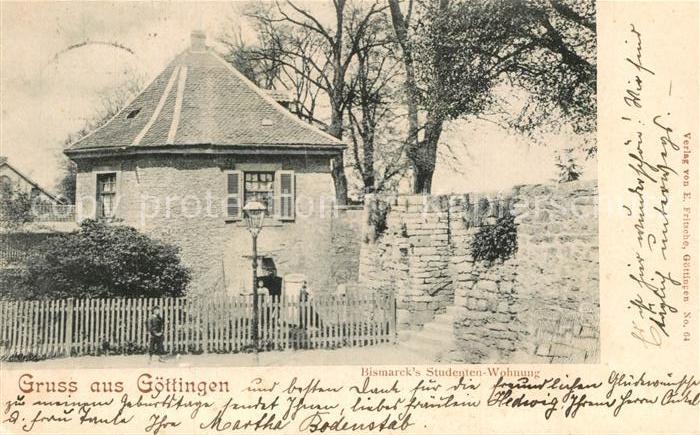 Bismarck's Studenten-Wohnung
Gruss aus Göttingen und besten Dank für die freundlichen Glückwünsche
zu meinem Geburtstage sendet Ihnen, liebes Fräulein Hedwig, Ihrem Herrn Onkel
u. Frau Tante Ihre Martha Bodenstab.
Es ist hier wunderschön! Wir sind
täglich unterwegs.
Verlag von E. Fritsche, Göttingen No. 64